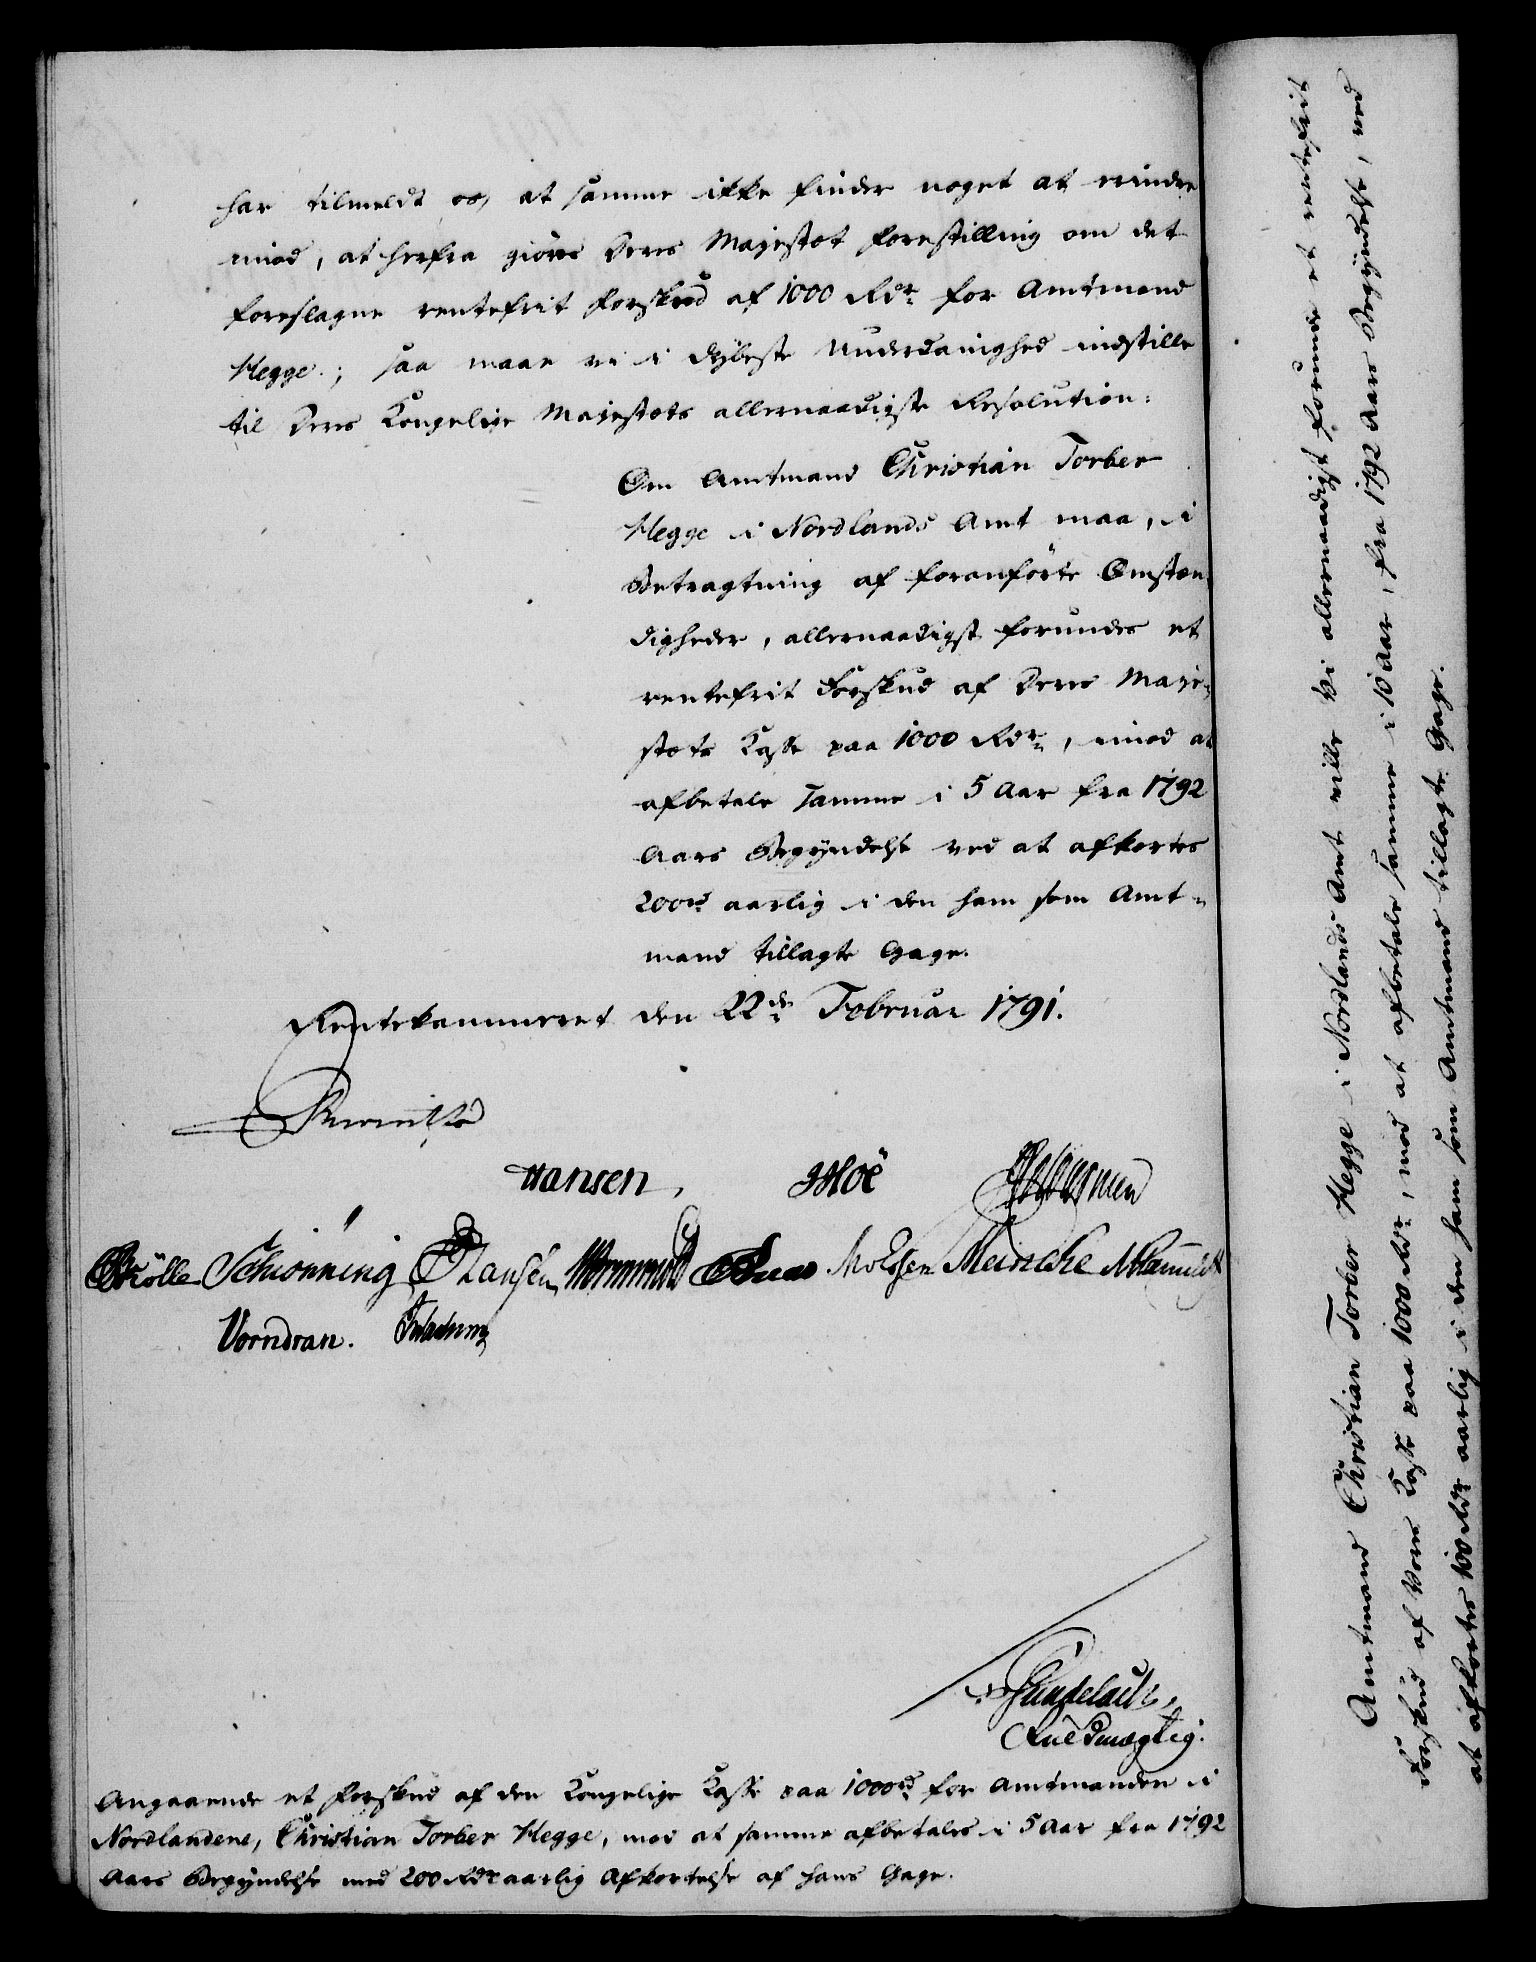 har tilmeldt os, at samme ikke finder noget at erindre
imod, at herfra giøres Deres Majestæt Forestilling om det
foreslagne rentefrit Forskud af 1000 Rdr. for Amtmand
Hegge; saa maae vi i dybeste Underdanighed indstille
til Deres Kongelige Majestæts allernaadigste Resolution:
Om Amtmand Christian Torber
Hegge i Nordlands Amt maa, i
Betragtning af foranførte Omstæn-
digheder, allernaadigst forundes et
rentefrit Forskud af Deres Maje-
stæts Casse paa 1000 Rdr., imod at
afbetale samme i 5 Aar fra 1792
Aars Begyndelse ved at afkortes
200rd aarlig i den ham som Amt-
mand tillagte Gage.
Rentekammeret den 22de Februar 1791.
Hansen. Moe
Schiønning Hansen Wormwold Meincke
Vorndran.
Gundelach,
Fuldmægtig.
Angaaende et Forskud af den Kongelige Casse paa 1000rd for Amtmanden i
Nordlandene, Christian Torber Hegge, mod at samme afbetales i 5 Aar fra 1792
Aars Begyndelse med 200 Rdr aarlig Afkortelse af hans Gage.
Amtmand Christian Torber Hegge i Nordlands Amt ville Vi allernaadigst forunde et rentefrit
Forskud af Vores Casse paa 1000 Rdr., mod at afbetale samme i 10 Aar, fra 1792 Aars Begyndelse, ved
at afkortes 100 Rdr aarlig i den ham som Amtmand tillagte Gage.